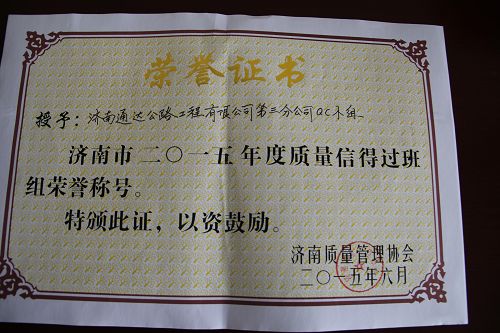 荣誉证书
授予：济南通达公路工程有限公司第三分公司QC小组
济南市二〇一五年度质量信得过班
组荣誉称号。
特颁此证，以资鼓励。
济南质量管理协会
二〇一五年六月